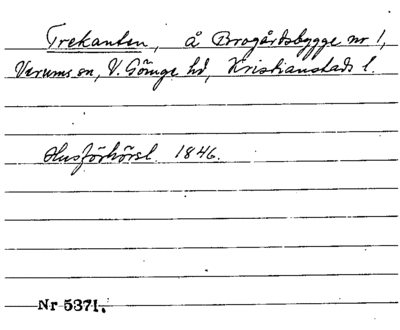 Trekanten, å Brogårdsbygge nr 1,
Verums sn, V. Göinge hd, Kristianstads l.
Husförhörsl. 1846.
Nr 5371.